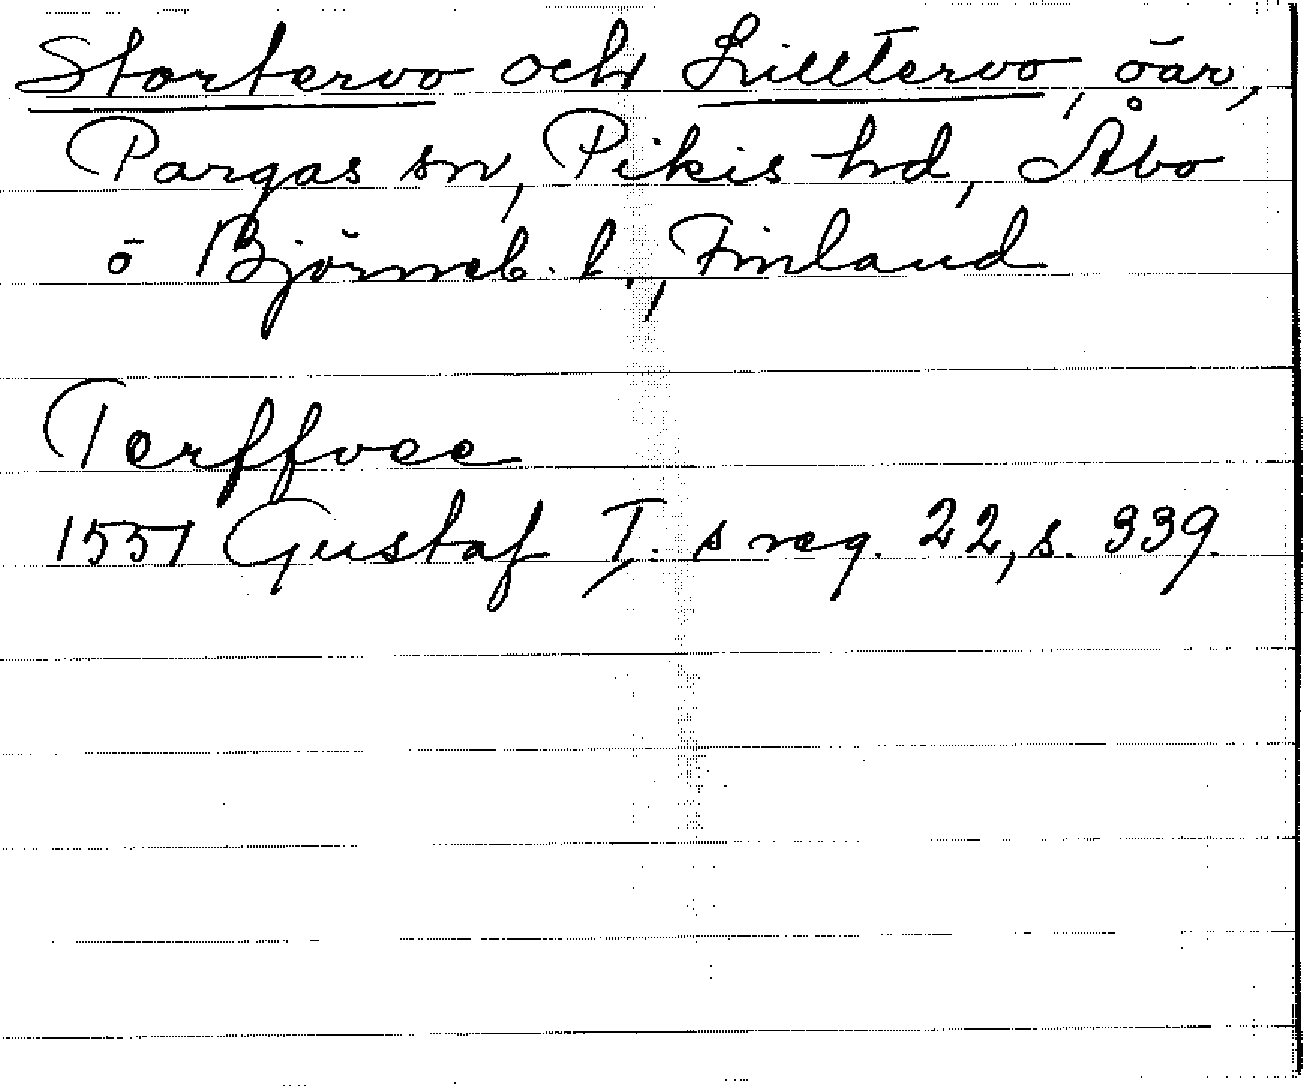 Stortervo och Lilltervo, öar,
Pargas sn, Pikis hd, Åbo
o Björneb. l., Finland
Terffvee
1551 Gustaf I. s reg. 22, s. 339.